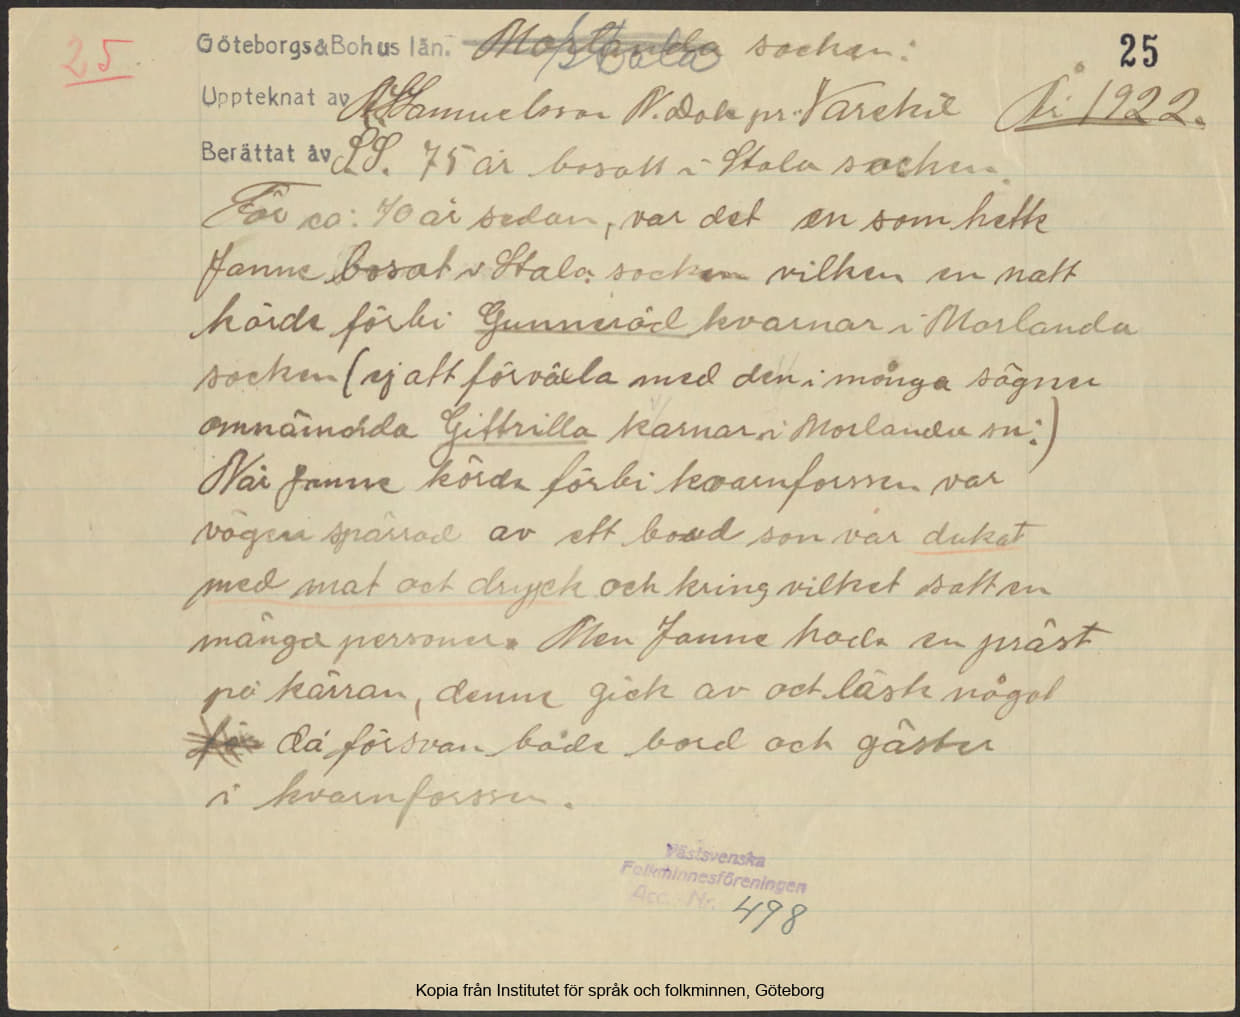 25.
25
Göteborgs&Bohus län. Morlanda Stala socken:
Uppteknat av Samuelsson N. pr. Varekil År 1922.
Berättat av S.S. 75 år bosatt i Stala socken.
För ca: 70 år sedan, var det en som hette
Janne bosat i Stala socken vilken en natt
körde förbi Gunneröd kvarnar i Morlanda
socken (ej att förväxla med den i många sägner
omnämdda Gittrilla karnar i Morlanda sn:)
När Janne körde förbi kvarnforssen var
vägen spärrad av ett bord som var dukat
med mat och dryck och kring vilket satt en
mängd personer. Men Janne hade en präst
på kärran, denne gick av och läste något
då försvan både bord och gäster
i kvarnforssen.
Västsvenska
Folkminnesföreningen
Acc. Nr. 498
Kopia från Institutet för språk och folkminnen, Göteborg